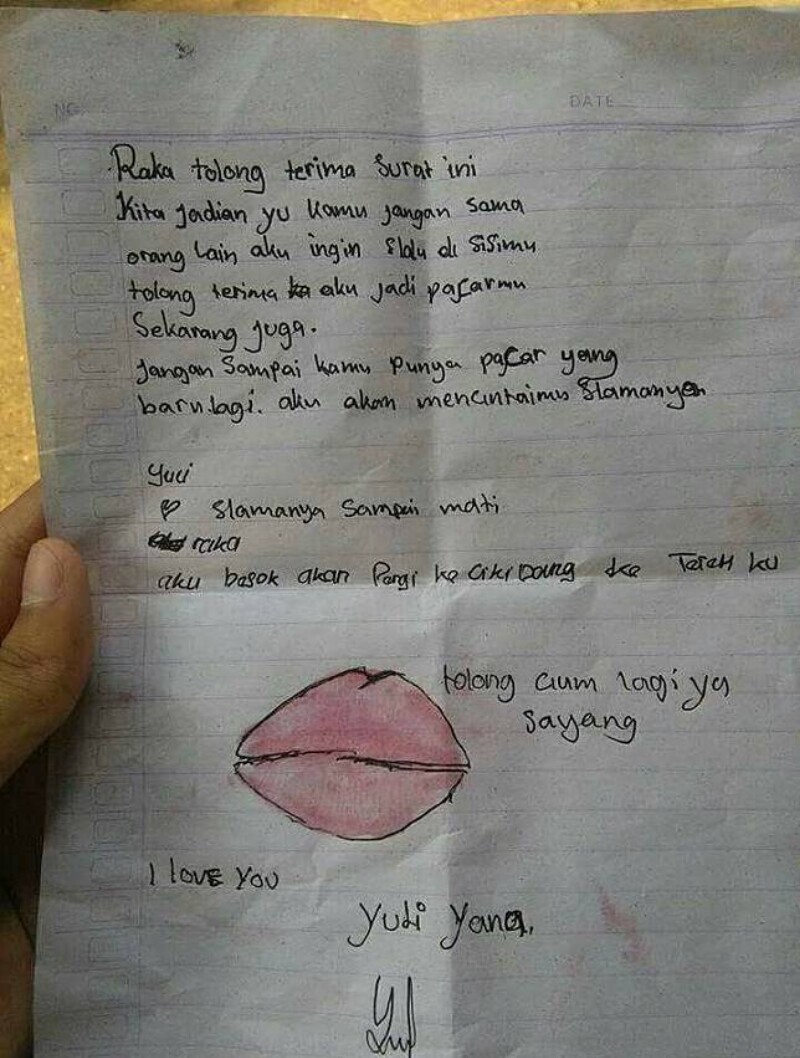 NO.
DATE
Raka tolong terima surat ini
Kita jadian yu kamu jangan sama
orang lain aku ingin slalu di sisimu
tolong terima aku jadi pacarmu
Sekarang juga.
jangan sampai kamu punya pacar yang
baru lagi. aku akan mencintaimu Slamanyan
Yuci
Slamanya Sampai mati
raka
aku besok akan Pergi ke Cikidang ke Teteh ku
tolong cium lagi ya
Sayang
I love you
Yuli Yana,